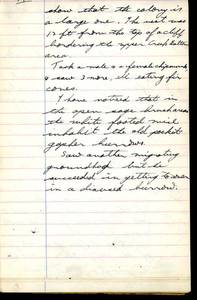 show that the colony is
a large one. The nest was
12 ft from the top of a cliff
bordering the upper Creek bottom
area.
Took a male & a female chipmunk,
& saw 3 more, all eating fir
cones.
I have noticed that in
the open sage brush areas
the white footed mice
inhabit the old pocket
gopher burrows.
Saw another migrating
groundhog but he
succeeded in getting down
in a disused burrow.